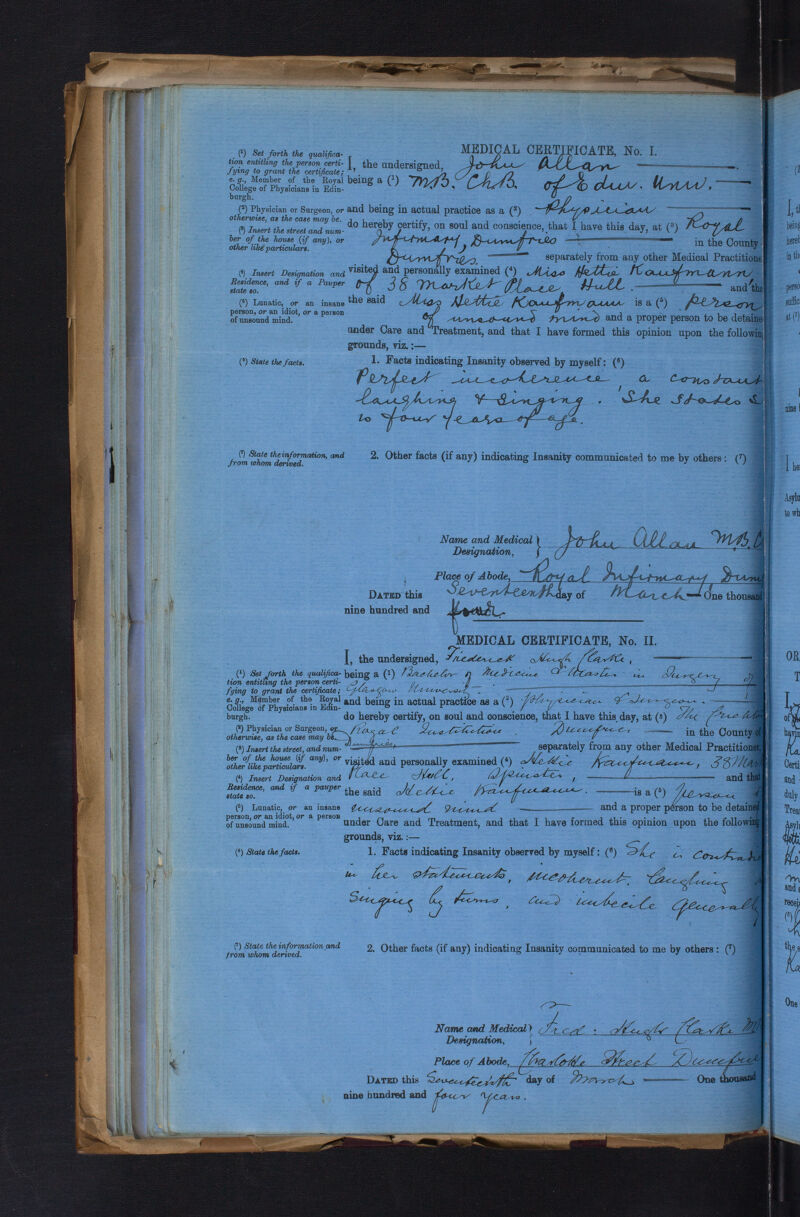 MEDICAL CERTIFICATE, No. I.
(1) Set forth the qualifica-
tion entitling the person certi-
fying to grant the certificate;
e.g., Member of the Royal
College of Physicians in Edin-
burgh.
I, the undersigned, John Allan
being a (1) M.B. Ch.B. of Edin. Univ.
(2) Physician or Surgeon, or
otherwise, as the case may be.
and being in actual practice as a (2) Physician
(3) Insert the street and num-
ber of the house (if any), or
other like particulars.
do hereby certify, on soul and conscience, that I have this day, at (3) Royal
Infirmary, Dumfries in the County
Dumfries separately from any other Medical Practitione
(4) Insert Designation and
Residence, and if a Pauper
state so.
visited and personally examined (4) Miss Hettie Kaufmann
of 38 Market Place Hull. and tha
(5) Lunatic, or an insane
person, or an idiot, or a person
of unsound mind.
the said Miss Hettie Kaufmann is a (5) person
of unsound mind and a proper person to be detaine
under Care and Treatment, and that I have formed this opinion upon the followin
grounds, viz.:—
(6) State the facts.
1. Facts indicating Insanity observed by myself: (6)
Perfect incoherence, a constant
laughing & singing. She states s
is four years of age.
(7) State the information, and
from whom derived.
2. Other facts (if any) indicating Insanity communicated to me by others: (7)
Name and Medical
Designation, John Allan M.B. C
Place of Abode, Royal Infirmary Dum
DATED this Seventeenth day of March One thousand
nine hundred and four
MEDICAL CERTIFICATE, No. II.
I, the undersigned, Frederick Hugh Clarke,
(1) Set forth the qualifica-
tion entitling the person certi-
fying to grant the certificate;
e.g., Member of the Royal
College of Physicians in Edin-
burgh.
being a (1) Bachelor of Medicine & Master in Surgery of
Glasgow University
and being in actual practice as a (2) physician & Surgeon.
(2) Physician or Surgeon, or
otherwise, as the case may be.
do hereby certify, on soul and conscience, that I have this day, at (3) The Crichton
Royal Institution Dumfries. in the County of
(3) Insert the street, and num-
ber of the house (if any), or
other like particulars.
Dumfries separately from any other Medical Practitioner,
(4) Insert Designation and
Residence, and if a pauper
state so.
visited and personally examined (4) Hettie Kaufmann, 38 Mar
Place Hull, Spinster, and tha
the said Hettie Kaufmann. is a (5) person
(5) Lunatic, or an insane
person, or an idiot, or a person
of unsound mind.
unsound mind and a proper person to be detained
under Care and Treatment, and that I have formed this opinion upon the following
grounds, viz.:—
(6) State the facts.
1. Facts indicating Insanity observed by myself: (6) She is contradic
in her statements, incoherent, laughing
singing by turns, and imbecile generally
(7) State the information and
from whom derived.
2. Other facts (if any) indicating Insanity communicated to me by others: (7)
Name and Medical
Designation, Fred: Hugh Clarke M
Place of Abode, Charlotte Street Dumfrie
DATED this Seventeenth day of March One thousand
nine hundred and four years.